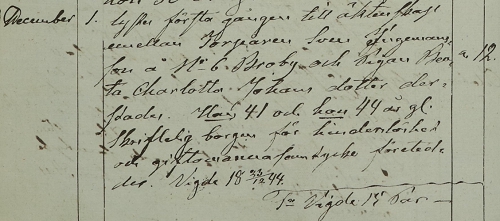 December 1. lystes första gången till äktenskap
emellan Torparen Sven Ingemans-
son å No 6 Broby och Pigan Ben- a. 12.
ta Charlotta Johans dotter der-
städes. Han 41 och hon 44 år gl:
Skriftelig borgen för hinderslöshet
och giftomannasamtycke företed-
des. Vigde 18 23/12 44.
Sa Vigde 15 Par —